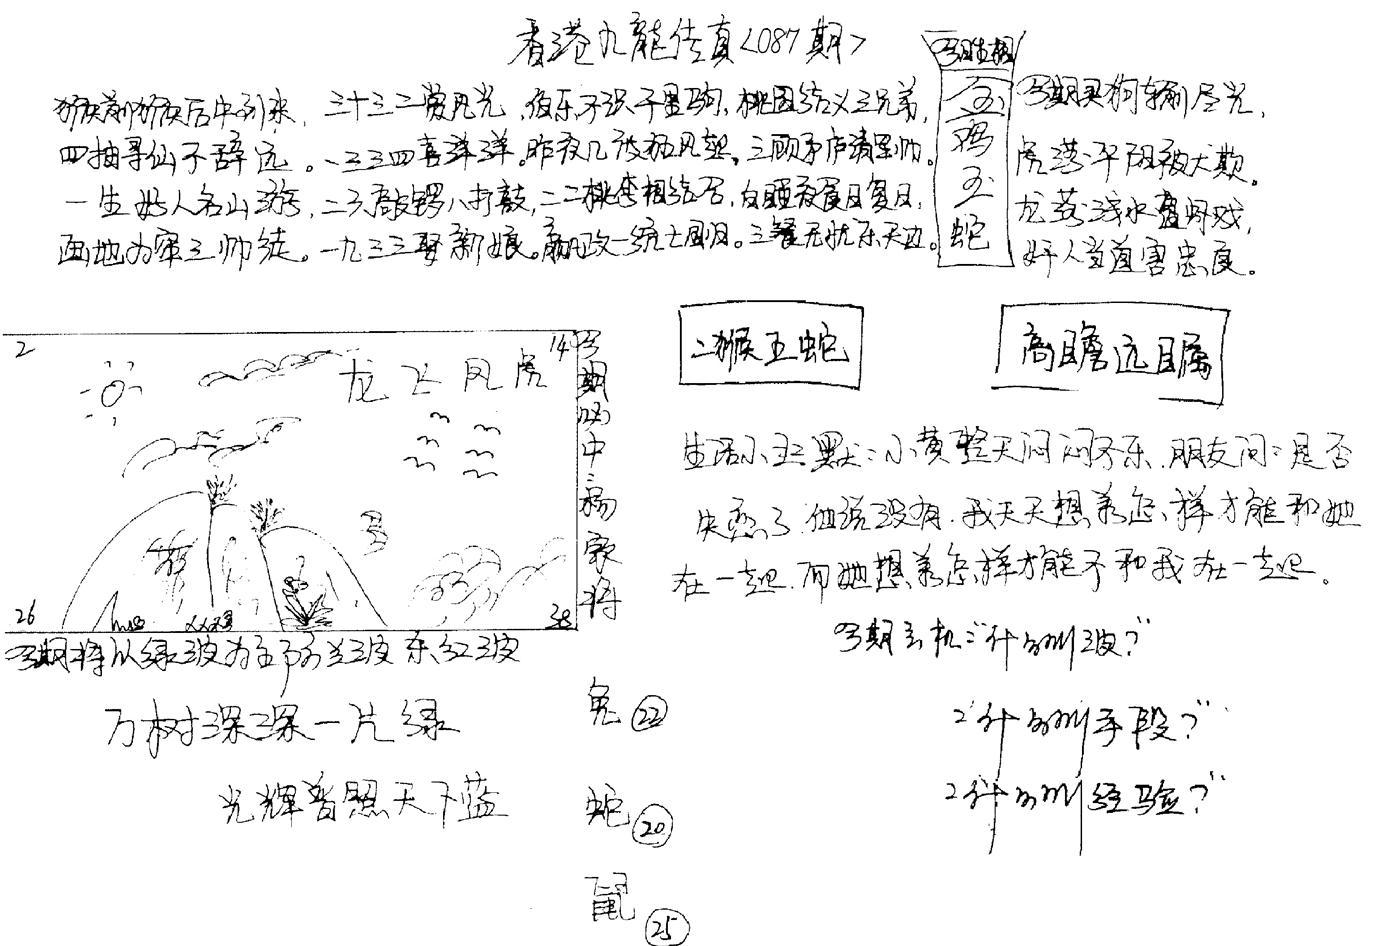 香港九龍传真<087期>
猴前猴后中到来，三十三二赏风光，伯乐不识千里驹，桃园结义三兄弟，
四抽寻仙不辞远。一二三四喜洋洋。昨夜几被狂风熄，三顾茅庐请军帅。
一生好人名山游，二六敲锣八打鼓，二二桃李相结居，白昼夜夜日复日，
画地为牢三帅徒。一九三三娶新娘。嬴政一统七国归。三餐无忧乐天边。
今期生相
金鸡玉蛇
今期买狗输尽光，
虎落平阳被犬欺。
龙落浅水遭虾戏，
奸人当道害忠良。
2
14
龙飞凤虎
26
38
今期必中三物家将
二猴五蛇
高瞻远瞩
生活小幽默：小黄整天闷闷不乐，朋友问：是否
失恋了，他说没有，我天天想着怎样才能和她
在一起，而她想着怎样才能不和我在一起。
今期玄机："什么叫波？"
"什么叫手段？"
"什么叫经验？"
今期将以绿波为主防蓝波杀红波
万树深深一片绿
光辉普照天下蓝
兔 22
蛇 20
鼠 25